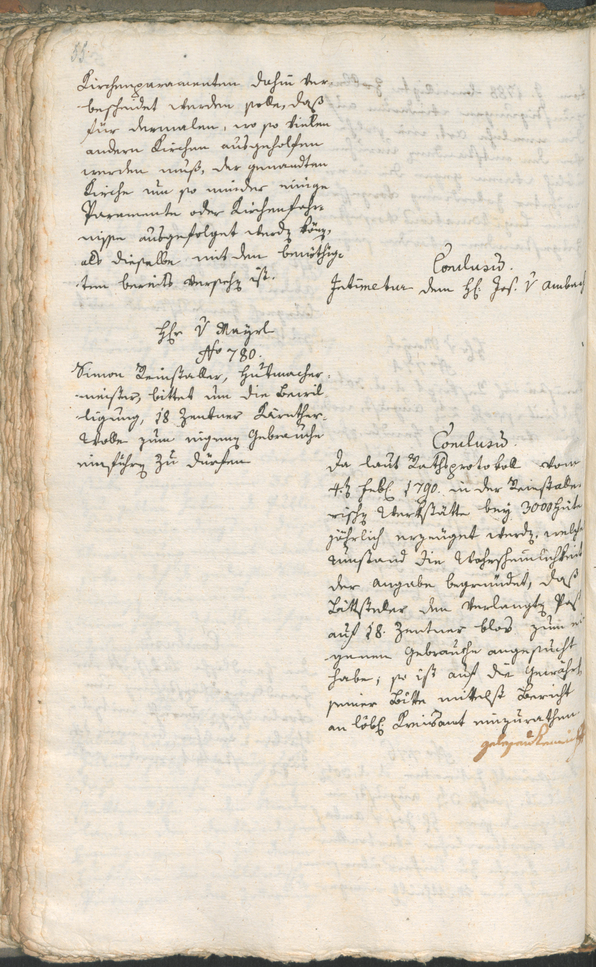 Kirchenparamenten dahin ver-
bescheidet werden solle, daß
für dermalen, wo so vielen
andern Kirchen ausgeholfen
werden muß, der genandten
Kirche um so minder einige
Paramente oder Kirchenfahr-
nissen ausgefolget werdn könn,
als dieselbe mit den benöthig-
ten bereits versehn ist.
Conclusum.
Intimetur dem H. Jos. v Ambach
Hr v Mayrl
No 780.
Simon Reinstaller, Hutmacher-
meister, bittet um die Bewil-
ligung, 18 Zentner Kärnther-
Wolle zum eigenen Gebrauche
einführn zu dürfen
Conclusum.
Da laut Rathsprotokol vom
4t Feb. 1790. in der Reinstalle-
rischn Werkstätte bey 3000 Hüte
jährlich erzeuget werdn, welcher
Umstand die Wahrscheinlichkeit
der Angabe begründet, daß
Bittsteller den verlangtn Pass
auf 18. Zentner blos zum ei-
genen Gebrauche angesucht
habe; so ist auf die Gewährung
seiner Bitte mittelst Bericht
an löbl. Kreisamt einzurathen